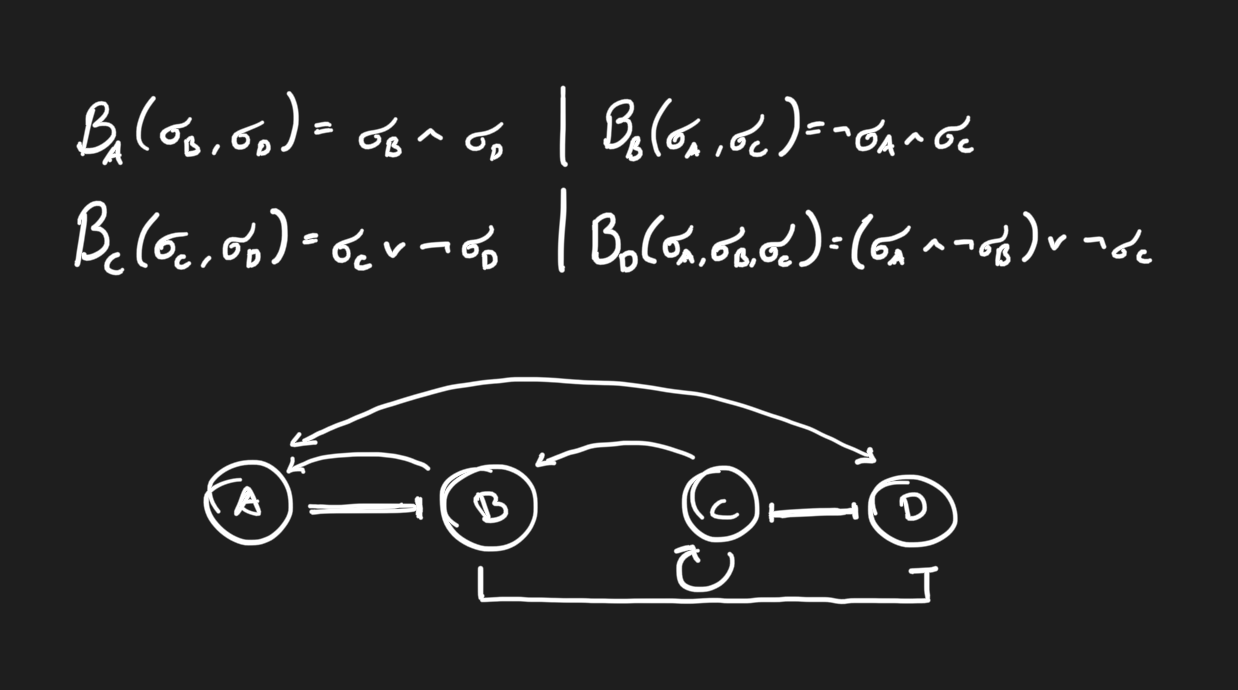 B_A(σ_B, σ_D) = σ_B ∧ σ_D | B_B(σ_A, σ_C) = ¬σ_A ∧ σ_C
B_C(σ_C, σ_D) = σ_C ∨ ¬σ_D | B_D(σ_A, σ_B, σ_C) = (σ_A ∧ ¬σ_B) ∨ ¬σ_C
A B C D